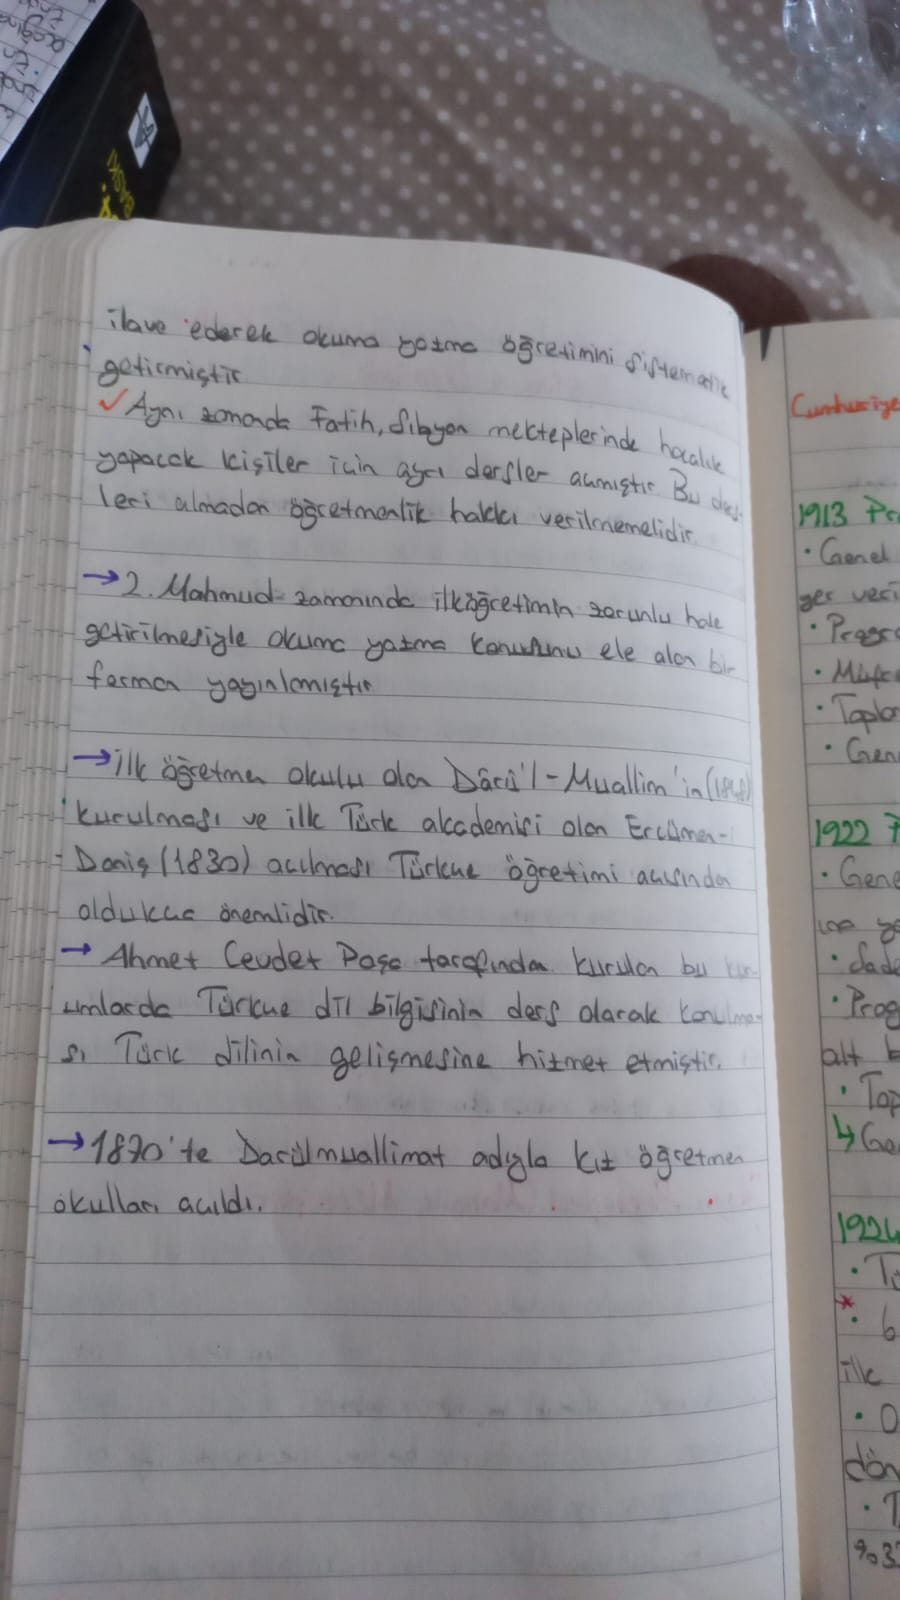 ilave ederek okuma yazma öğretimini sistematik
getirmiştir
✓ Aynı zamanda Fatih, Sıbyan mekteplerinde hocalık
yapacak kişiler için ayrı dersler açmıştır. Bu ders-
leri almadan öğretmenlik hakkı verilmemelidir.
→ 2. Mahmud zamanında ilköğretimin zorunlu hale
getirilmesiyle okuma yazma konusunu ele alan bir
ferman yayınlamıştır
→ ilk öğretmen okulu olan Dârü'l-Muallim'in (1848)
kurulması ve ilk Türk akademisi olan Ercümen-i
Daniş (1830) açılması Türkçe öğretimi açısından
oldukça önemlidir.
→ Ahmet Cevdet Paşa tarafından kurulan bu kur-
umlarda Türkçe dil bilgisinin ders olarak konulma-
sı Türk dilinin gelişmesine hizmet etmiştir.
→ 1870'te Darülmuallimat adıyla kız öğretmen
okulları açıldı.
Cumhuriye
1913 Pr
• Genel
yer veri
• Progra
•
• Topla
• Gene
1922 P
• Gene
• Sade
• Prog
alt b
• Top
↳ Ge
1924
• Tü
* • 6
ilk
• O
dön
• T
%03